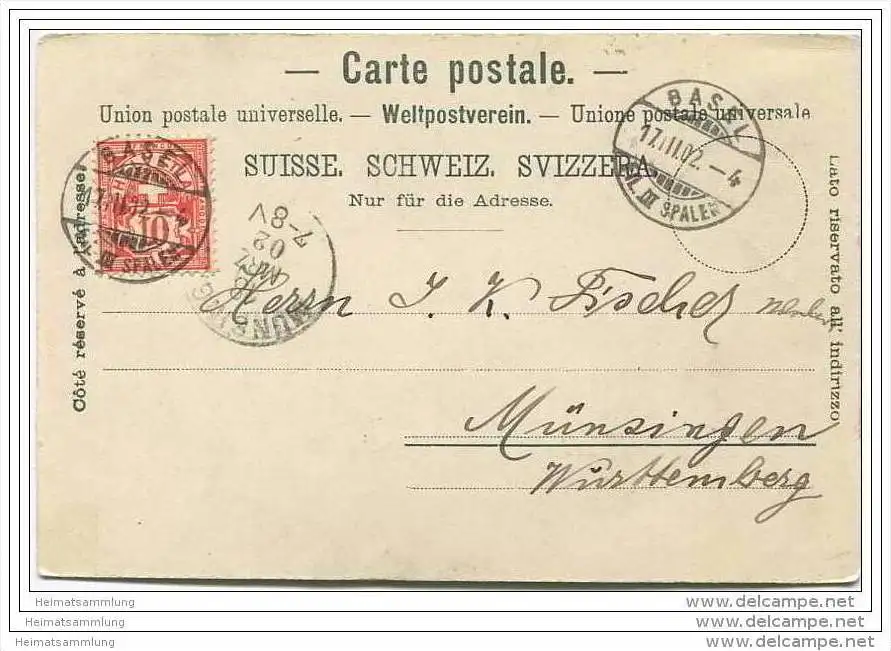 — Carte postale. —
Union postale universelle. — Weltpostverein. — Unione postale universale
SUISSE. SCHWEIZ. SVIZZERA.
Nur für die Adresse.
Côté réservé à l'adresse.
Lato riservato all' indirizzo
BASEL
17.III.02.–4
SPALEN
BASEL
17.III.02.–4
III SPALEN
10
MÜNSINGEN
MRZ
02
7-8V
Herrn J. K. Fischer
Münsingen
Württemberg
Heimatsammlung
www.delcampe.net
Heimatsammlung
www.delcampe.net
Heimatsammlung
www.delcampe.net